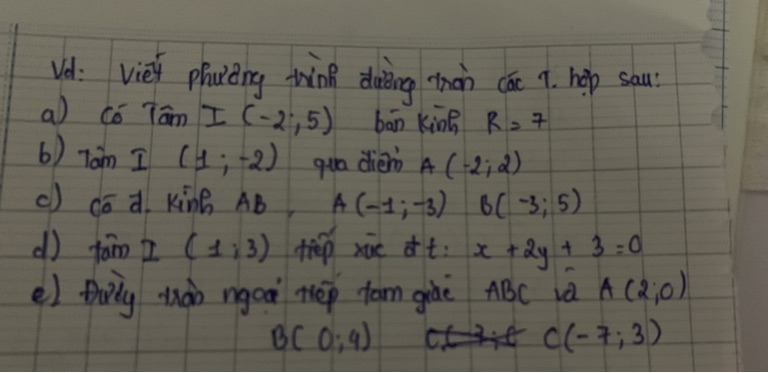 Vd: Viết phương trình đường tròn các T. hợp sau:
a) Có Tâm I (-2; 5) bán kính R = 7
b) Tâm I (1; -2) qua điểm A (-2; 2)
c) Có đ. kính AB, A(-1; -3) B(-3; 5)
d) tâm I (1; 3) tiếp xúc đt: x + 2y + 3 = 0
e) Đường tròn ngoại tiếp tam giác ABC và A (2; 0)
B( 0; 4) C(-7; 3)